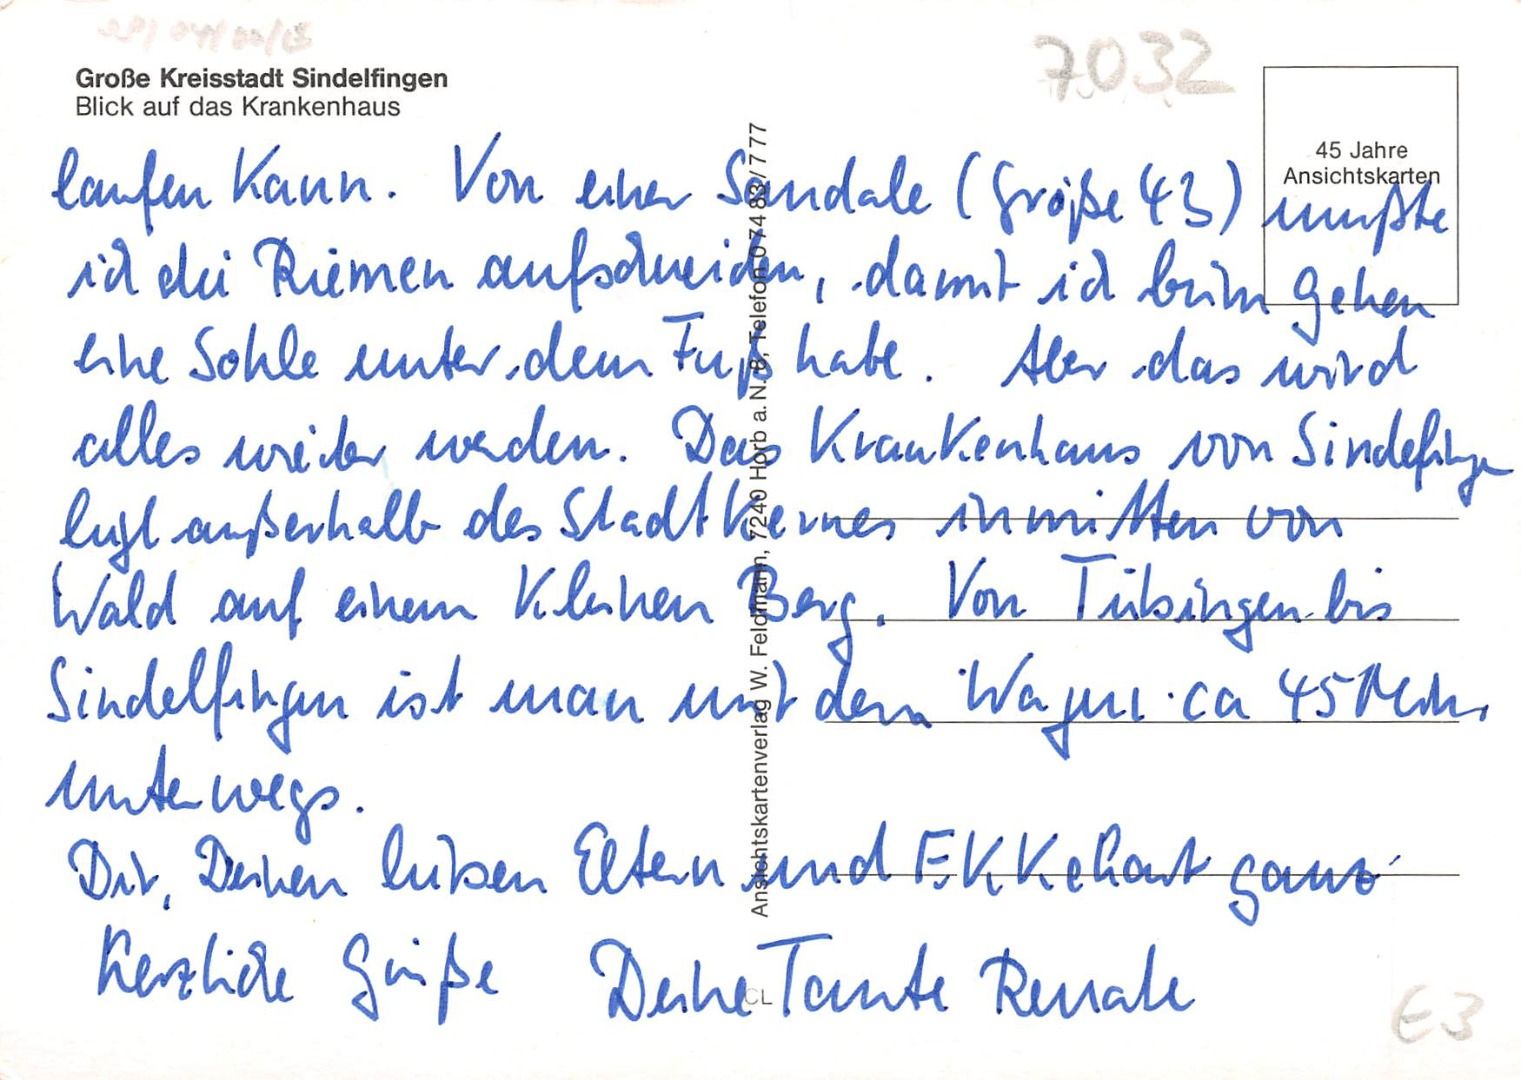 7032
Große Kreisstadt Sindelfingen
Blick auf das Krankenhaus
45 Jahre
Ansichtskarten
laufen kann. Von einer Sandale (Größe 43) mußte
ich die Riemen aufschneiden, damit ich beim Gehen
eine Sohle unter dem Fuß habe. Aber das wird
alles wieder werden. Das Krankenhaus von Sindelfingen
liegt außerhalb des Stadtkernes inmitten von
Wald auf einem kleinen Berg. Von Tübingen bis
Sindelfingen ist man mit dem Wagen ca 45 Min.
unterwegs.
Dir, Deinen lieben Eltern und Ekkehart ganz
herzliche Grüße Deine Tante Renate
Ansichtskartenverlag W. Feldmann, 7240 Horb a. N. 8, Telefon 0 74 83 / 7 77
CL
E3